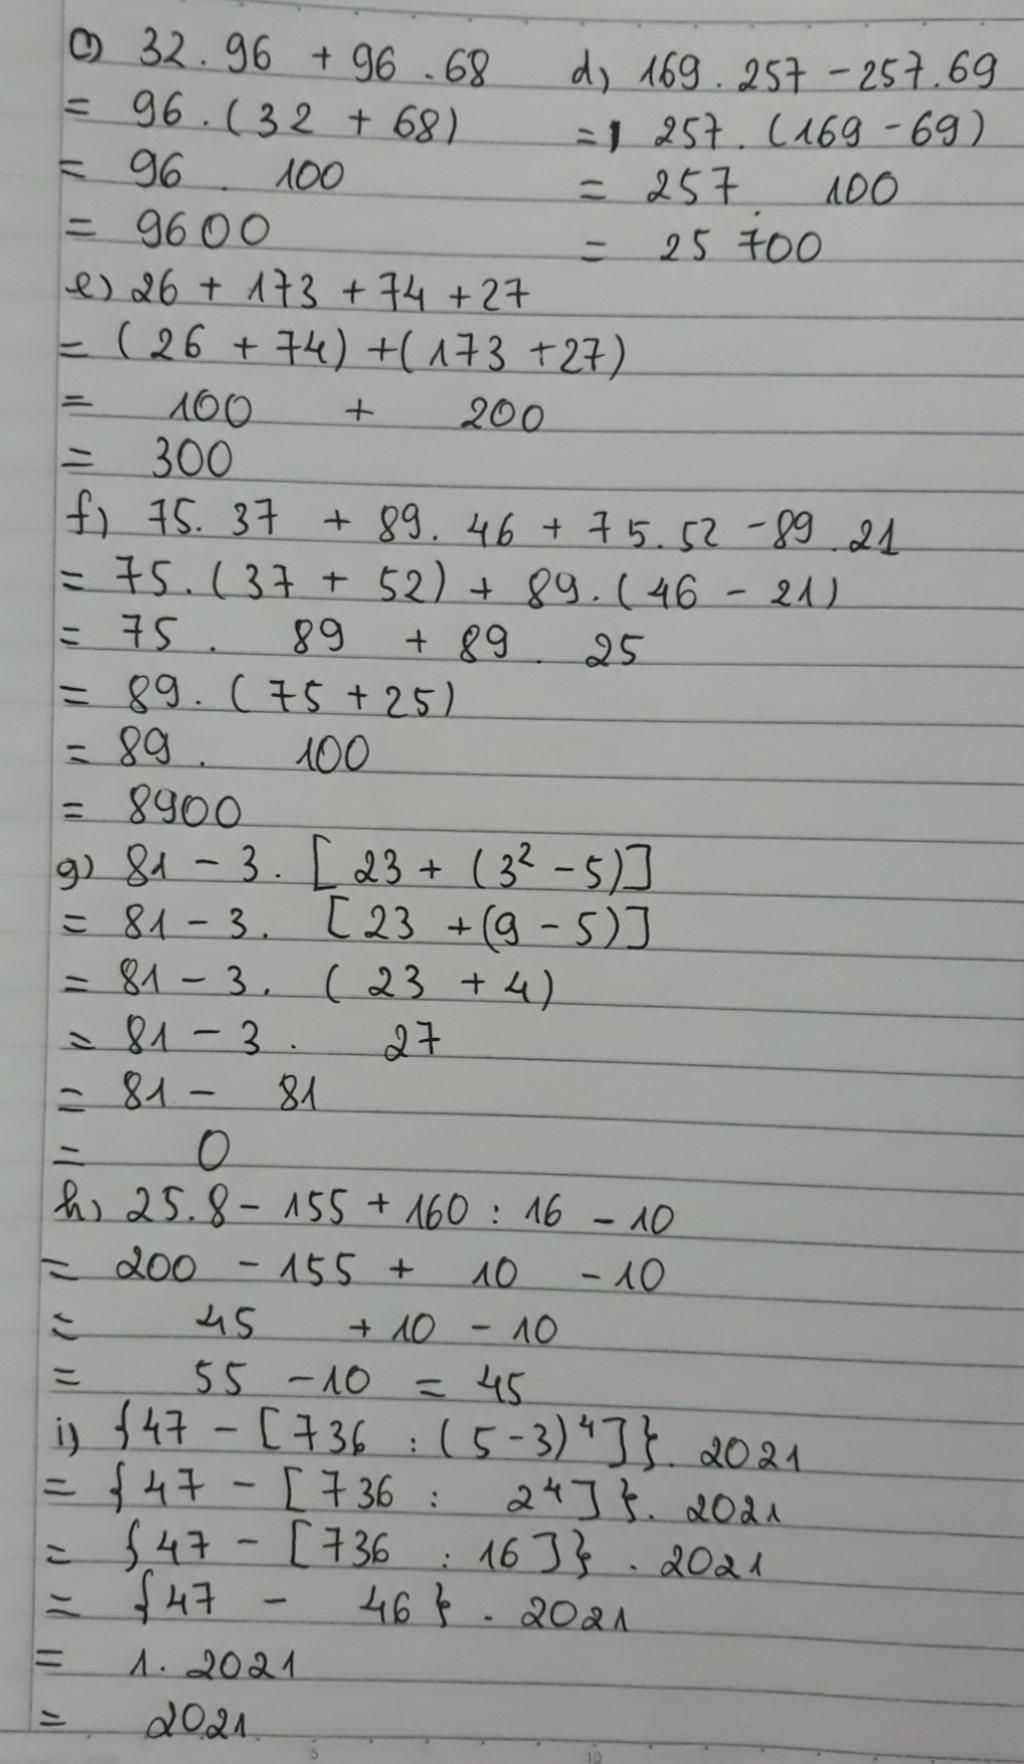 c) 32.96 + 96.68
= 96.(32 + 68)
= 96 . 100
= 9600
d) 169.257 - 257.69
= 257.(169 - 69)
= 257 . 100
= 25 700
e) 26 + 173 + 74 + 27
= (26 + 74) + (173 + 27)
= 100 + 200
= 300
f) 75.37 + 89.46 + 75.52 - 89.21
= 75.(37 + 52) + 89.(46 - 21)
= 75 . 89 + 89 . 25
= 89.(75 + 25)
= 89 . 100
= 8900
g) 81 - 3.[23 + (3² - 5)]
= 81 - 3.[23 + (9 - 5)]
= 81 - 3.(23 + 4)
= 81 - 3 . 27
= 81 - 81
= 0
h) 25.8 - 155 + 160 : 16 - 10
= 200 - 155 + 10 - 10
= 45 + 10 - 10
= 55 - 10 = 45
i) {47 - [736 : (5-3)⁴]}. 2021
= {47 - [736 : 2⁴]}. 2021
= {47 - [736 : 16]} . 2021
= {47 - 46} . 2021
= 1. 2021
= 2021
5 10